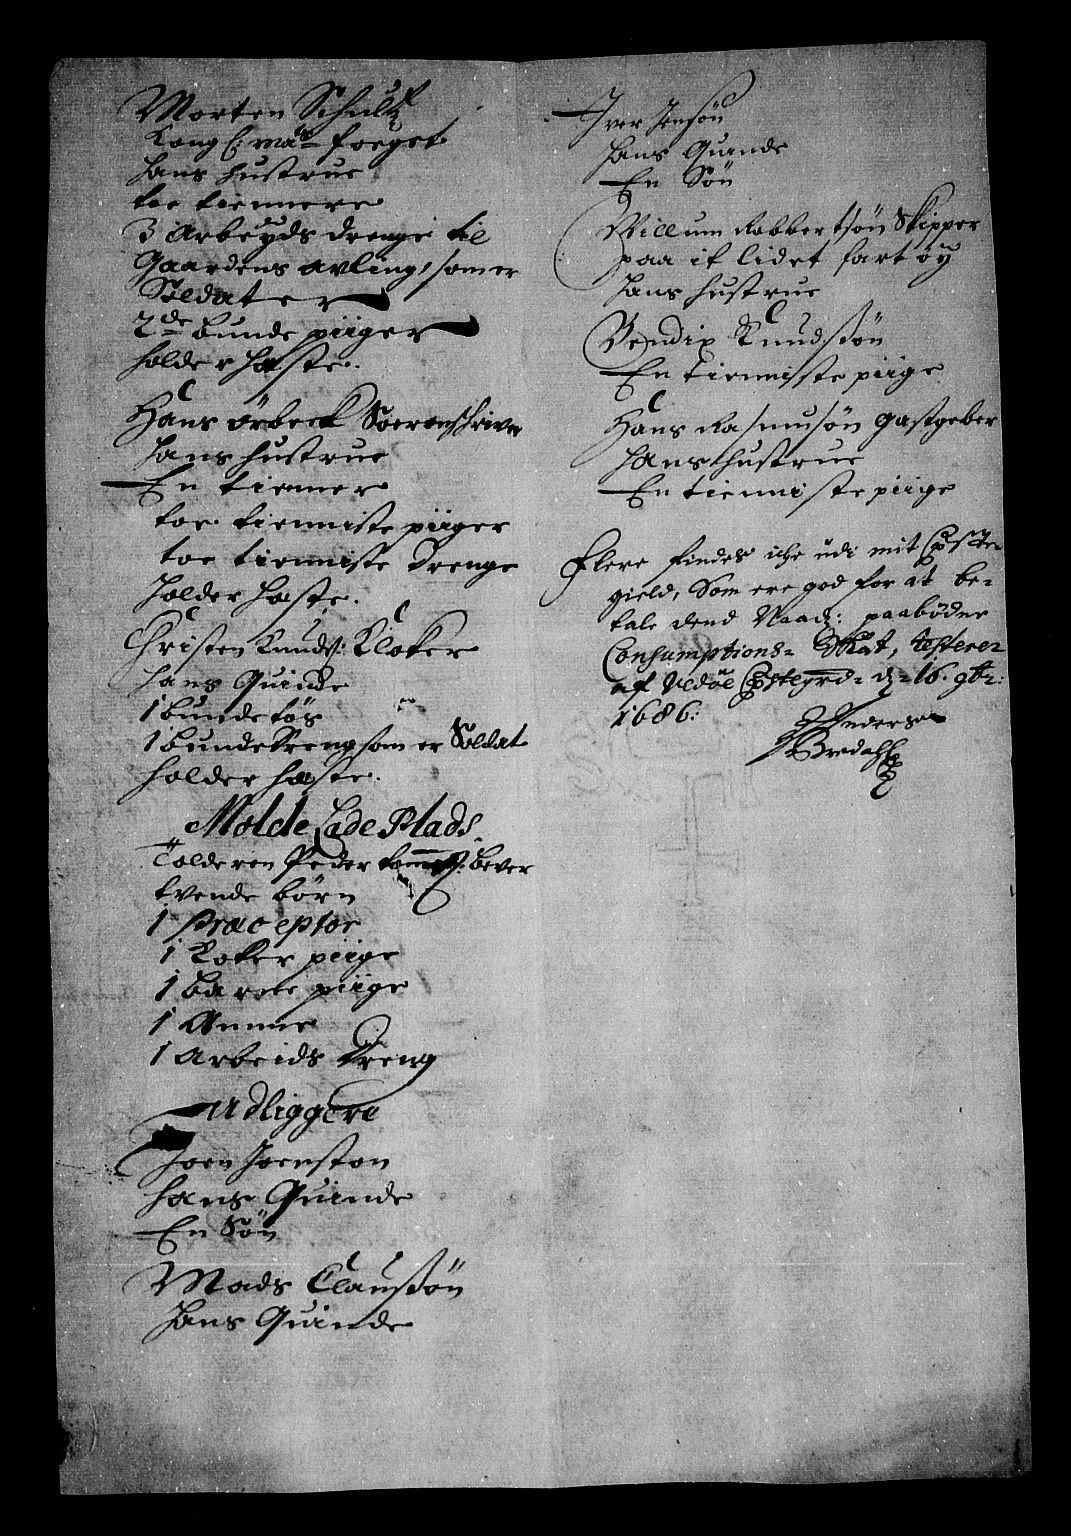 Morten Schultz
Kong e: ma:ts foeget
Hans hustrue
toe tiennere
3 Arbeyds drenge til
Gaardens avling, som er
Soldater
2de bunde piiger
holder hæste.
Hans örbeck Sorenschriver
Hans hustrue
En tienner
toe tienniste piiger
toe tienniste Drenge
holder hæste.
Christen Knuds: Klocker
hans Quinde
1 bunde tøs
1 bunde dreng som er Soldat
holder hæste.
Molde Lade Plads
Tolderen Peder Bever
tvende børn
1 Præceptor
1 Kocke piige
1 barne piige
1 Amme
1 Arbeids Dreng
Udliggere
Joen Joenston
hans Quinde
En Søn
Mads Claussön
Hans Quinde
Iver Jensön
Hans Quinde
En Sön
Willum Robbertsön Skipper
paa it lidet fartöy
Hans hustrue
Bendix Knudssön
En tienniste piige
Hans Rasmusön gastgeber
Hans hustrue
En tienniste piige
Flere findes iche udi mit Preste-
gield, Som ere god for at be-
tale dend Naad: paabödne
Consumptions= Skat, testerer
af Vedöe Prestegrd= d= 16. 9br:
1686:
Anderson
Bredahl